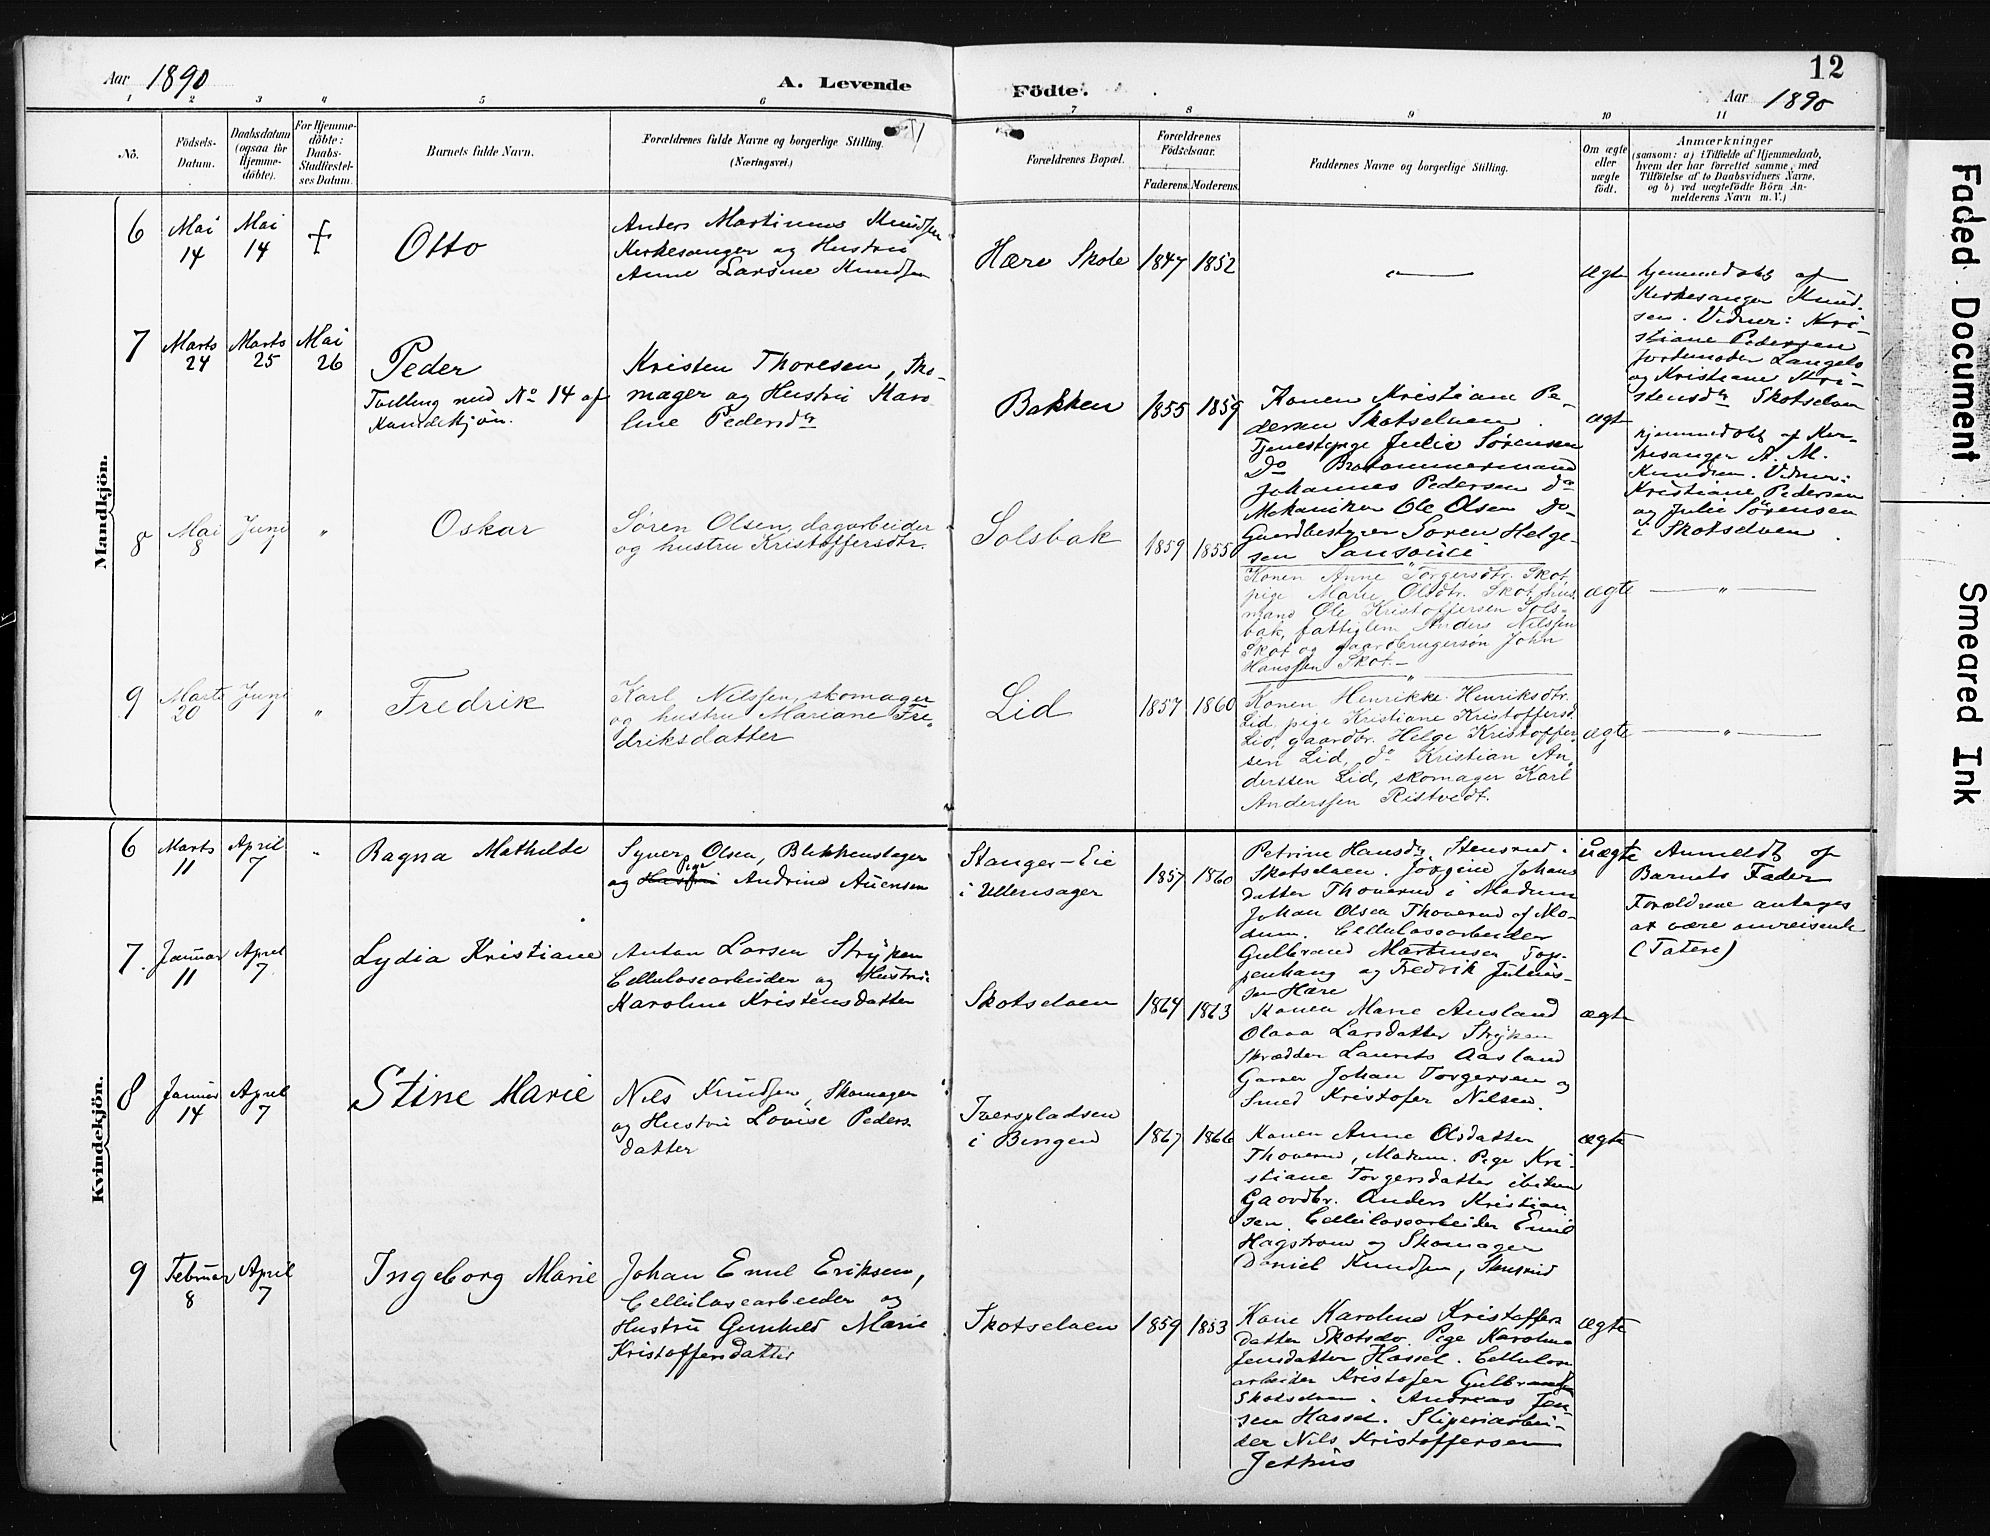 Aar 1890
A. Levende
Födte.
12
Aar 1890
1 2 3 4 5 6 7 8 9 10 11
No.
Födsels-
Datum.
Daabsdatum
(ogsaa for
Hjemme-
döbte).
For Hjemme-
döbte:
Daabs-
Stadfæstel-
ses Datum.
Barnets fulde Navn.
Forældrenes fulde Navne og borgerlige Stilling.
(Næringsvei.)
Forældrenes Bopæl.
Forældrenes
Födselsaar.
Faderens. Moderens.
Faddernes Navne og borgerlige Stilling.
Om ægte
eller
uægte
født.
Anmærkninger
(saasom: a) i Tilfælde af Hjemmedaab,
hvem der har forrettet samme, med
Tilföielse af to Daabsvidners Navne,
og b) ved uægtefödte Börn An-
melderens Navn m. V.)
Mandkjön.
6
Mai
14
Mai
14
Otto
Anders Martinus Knudsen
Kirkesanger og Hustru
Anne Larsine Knudsen
Hære Skole
1847 1852
ægte
hjemmedøbt af
Kirkesanger Knud-
sen. Vidner: Kri-
stiane Pedersen
Jordemoder Langelo
og Kristiane Kri-
stensdr Skotselven
7
Marts
24
Marts
25
Mai
26
Peder
Tvilling med No 14 af
Kvindekjön.
Kristen Thoresen, Sko-
mager og Hustru Karo-
line Pedersdr
Bakken
1855 1859
Konen Kristiane Pe-
dersen Skotselven.
Tjenestepige Julie Sørensen
Do
Johannes Pedersen do
Mekaniker Ole Olsen do
Gaardbestyrer Søren Helge-
sen Sansouci
ægte
hjemmedøbt af Kir-
kesanger A. M.
Knudsen. Vidner:
Kristiane Pedersen
og Julie Sørensen
i Skotselven.
8
Mai
8
Juni
1
"
Oskar
Søren Olsen, dagarbeider
og hustru Kristoffersdtr.
Solsbak
1859 1855
Konen Anne Torgersdtr. Skot,
pige Marie Olsdtr. Skot, hus-
mand Ole Kristoffersen Sols-
bak, fattiglem Anders Nilssen
Skot og gaardbrugersøn John
Hanssen Skot.
ægte
"
9
Marts
20
Juni
1
"
Fredrik
Karl Nilssen, skomager
og hustru Mariane Fre-
driksdatter
Lid
1857 1860
Konen Henrikke Henriksdtr.
Lid, pige Kristiane Kristoffersd.
Lid, gaardbr. Helge Kristoffer-
sen Lid, do Kristian An-
derssen Lid, skomager Karl
Anderssen Ristvedt.
ægte
"
Kvindekjön.
6
Marts
11
April
7
"
Ragna Mathilde
Syver Olsen, Blikkenslager
og Pige Andrine Auensen
Stanger-Eie
i Ullensager
1857 1860
Petrine Hansdr, Stensrud i
Skotselven. Jørgine Johans
datter Thoverud i Modum
Johan Olsen Thoverud af Mo-
dum. Cellulosearbeider
Gulbrand Martinsen Top-
penhaug og Fredrik Julius-
sen Hære
uægte
Anmeldt af
Barnets Fader
Forældrene antages
at være omreisende
(Tatere)
7.
Januar
11
April
7
Lydia Kristiane
Anton Larsen Stryken
Cellulosearbeider og Hustru
Karoline Kristensdatter
Skotselven
1864 1863
Konen Marie Aasland
Olava Larsdatter Stryken
Skrædder Laurits Aasland
Garver Johan Torgersen og
Smed Kristofer Nilsen.
ægte
8
Januar
14
April
7
Stine Marie
Nils Knudsen, Skomager
og Hustru Lovise Peders
datter
Iverspladsen
i Bingen
1867 1866
Konen Anne Olsdatter
Thoverud, Modum. Pige Kri-
stiane Torgersdatter ibidem
Gaardbr. Anders Kristian
sen. Cellulosearbeider Emil
Hagstrøm og Skomager
Daniel Knudsen, Stensrud
ægte
9
Februar
8
April
7
Ingeborg Marie
Johan Emil Eriksen,
Cellulosearbeider og
Hustru Gunhild Marie
Kristoffersdatter
Skotselven
1859 1853
Kone Karoline Kristoffers
datter Skotselv. Pige Karoline
Jensdatter Hassel. Cellulose
arbeider Kristofer Gulbrandsen
Skotselven. Andreas Jen-
sen Hassel. Sliperiarbei-
der Nils Kristoffersen
Jethus
ægte
Faded Document
Smeared Ink